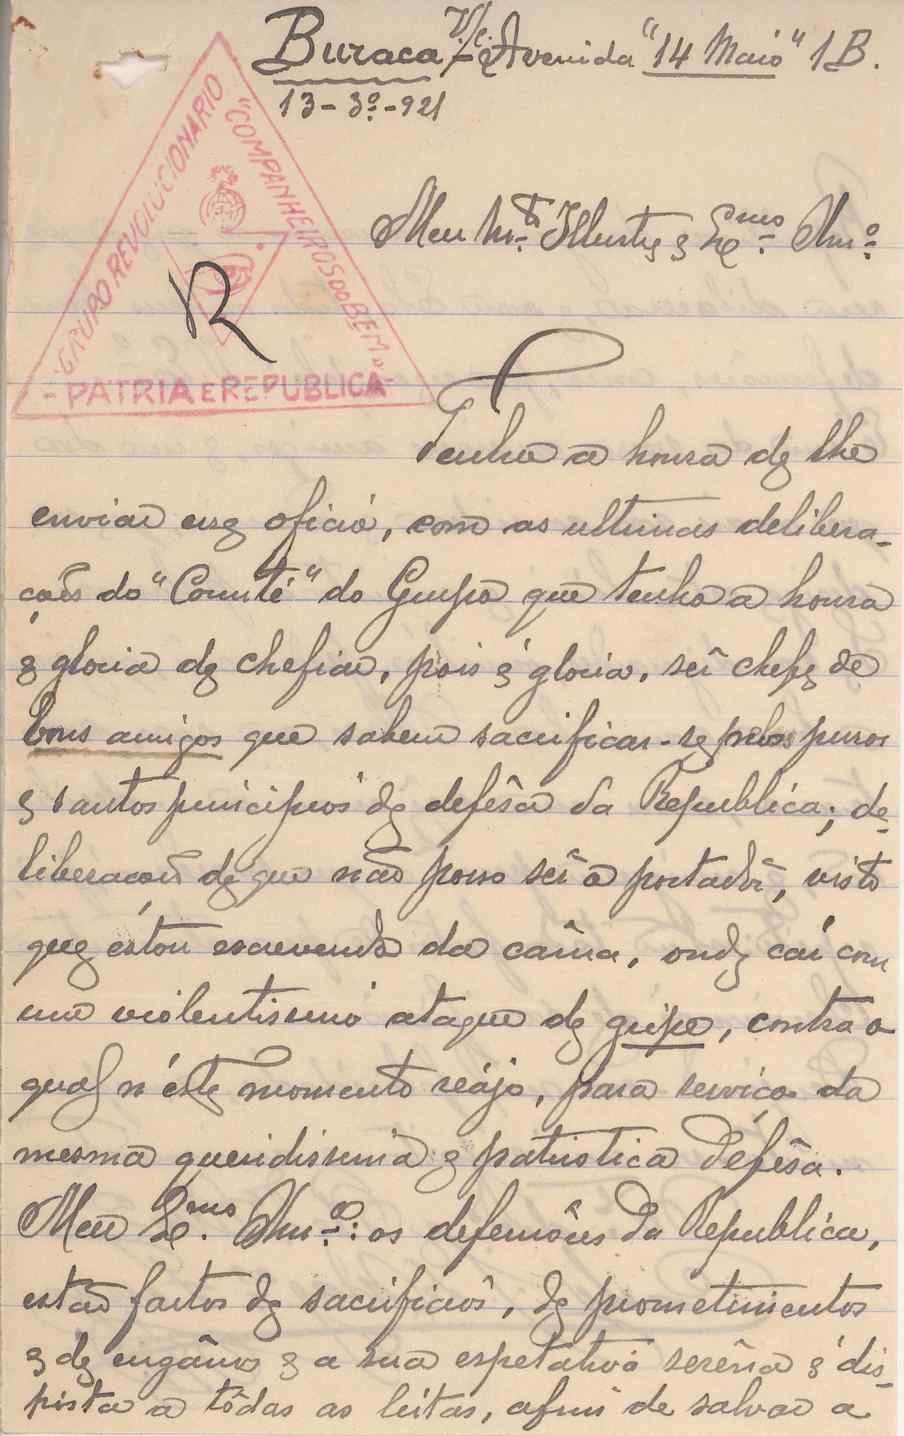 Buraca, Avenida "14 Maio" 1B.
13-3º-921
GRUPO REVOLUCIONARIO
"COMPANHEIROS DO BEM"
-PATRIA E REPUBLICA-
R
Meu Mto Illustre e Exmo Amo
Tenho a honra de lhe
enviar esse ofició, com as ultimas delibera-
ções do "Comité" do Grupo que tenho a honra
e gloria de chefiar, pois é gloria, sêr chefe de
bons amigos que sabem sacrificar-se pelos puros
e santos principios de defêsa da Republica; de-
liberações de que não posso sêr o portadôr, visto
que estou escrevendo da câma, onde caí com
um violentissimo ataque de gripe, contra o
qual n'éste momento reájo, para serviço da
mesma queridissima e patriotica défêsa.
Meu Exmo Amo: os defensôres da Republica,
estão fartos de sacrificiós, de prometimentos
e de engânos e a sua espetativa serêna é dis-
posta a tôdas as lutas, afim de salvar a